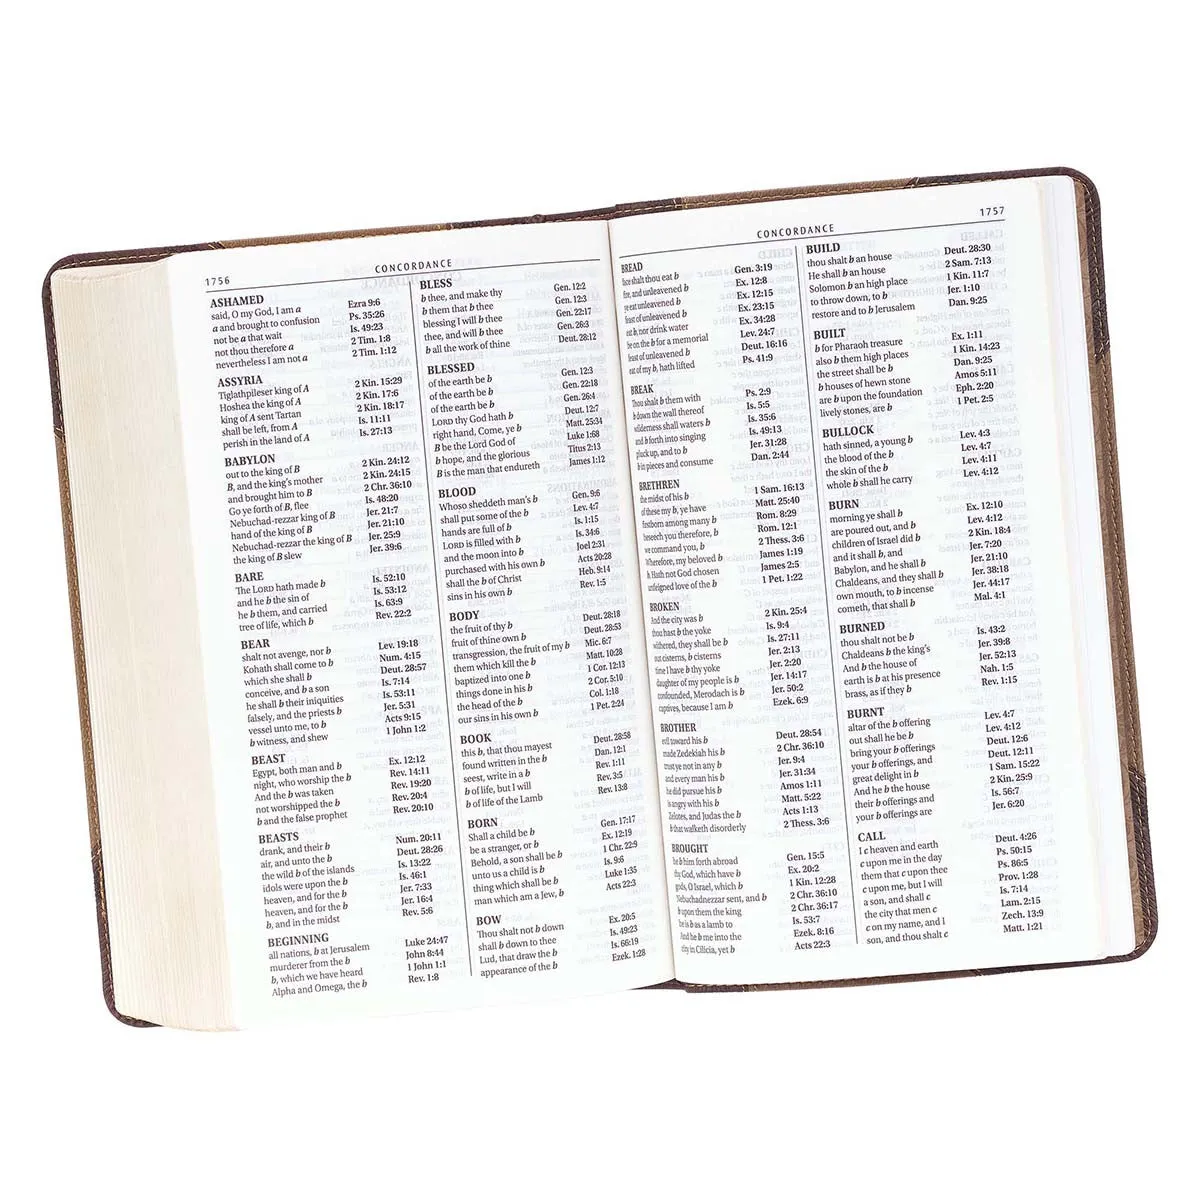 1756
CONCORDANCE
ASHAMED
said, O my God, I am a Ezra 9:6
a and brought to confusion Ps. 35:26
not be a that wait Is. 49:23
not thou therefore a 2 Tim. 1:8
nevertheless I am not a 2 Tim. 1:12
ASSYRIA
Tiglathpileser king of A 2 Kin. 15:29
Hoshea the king of A 2 Kin. 17:6
king of A sent Tartan 2 Kin. 18:17
shall be left, from A Is. 11:11
perish in the land of A Is. 27:13
BABYLON
out to the king of B 2 Kin. 24:12
B, and the king's mother 2 Kin. 24:15
and brought him to B 2 Chr. 36:10
Go ye forth of B, flee Is. 48:20
Nebuchad-rezzar king of B Jer. 21:7
hand of the king of B Jer. 21:10
Nebuchad-rezzar the king of B Jer. 25:9
the king of B slew Jer. 39:6
BARE
The LORD hath made b Is. 52:10
and he b the sin of Is. 53:12
he b them, and carried Is. 63:9
tree of life, which b Rev. 22:2
BEAR
shalt not avenge, nor b Lev. 19:18
Kohath shall come to b Num. 4:15
which she shall b Deut. 28:57
conceive, and b a son Is. 7:14
he shall b their iniquities Is. 53:11
falsely, and the priests b Jer. 5:31
vessel unto me, to b Acts 9:15
b witness, and shew 1 John 1:2
BEAST
Egypt, both man and b Ex. 12:12
night, who worship the b Rev. 14:11
And the b was taken Rev. 19:20
not worshipped the b Rev. 20:4
b and the false prophet Rev. 20:10
BEASTS
drank, and their b Num. 20:11
air, and unto the b Deut. 28:26
the wild b of the islands Is. 13:22
idols were upon the b Is. 46:1
heaven, and for the b Jer. 7:33
heaven, and for the b Jer. 16:4
b, and in the midst Rev. 5:6
BEGINNING
all nations, b at Jerusalem Luke 24:47
murderer from the b John 8:44
b, which we have heard 1 John 1:1
Alpha and Omega, the b Rev. 1:8
BLESS
b thee, and make thy Gen. 12:2
b them that b thee Gen. 12:3
blessing I will b thee Gen. 22:17
thee, and will b thee Gen. 26:3
b all the work of thine Deut. 28:12
BLESSED
of the earth be b Gen. 12:3
of the earth be b Gen. 22:18
of the earth be b Gen. 26:4
LORD thy God hath b Deut. 12:7
right hand, Come, ye b Matt. 25:34
B be the Lord God of Luke 1:68
b hope, and the glorious Titus 2:13
B is the man that endureth James 1:12
BLOOD
Whoso sheddeth man's b Gen. 9:6
shall put some of the b Lev. 4:7
hands are full of b Is. 1:15
LORD is filled with b Is. 34:6
and the moon into b Joel 2:31
purchased with his own b Acts 20:28
shall the b of Christ Heb. 9:14
sins in his own b Rev. 1:5
BODY
the fruit of thy b Deut. 28:18
fruit of thine own b Deut. 28:53
transgression, the fruit of my b Mic. 6:7
them which kill the b Matt. 10:28
baptized into one b 1 Cor. 12:13
things done in his b 2 Cor. 5:10
the head of the b Col. 1:18
our sins in his own b 1 Pet. 2:24
BOOK
this b, that thou mayest Deut. 28:58
found written in the b Dan. 12:1
seest, write in a b Rev. 1:11
b of life, but I will Rev. 3:5
b of life of the Lamb Rev. 13:8
BORN
Shall a child be b Gen. 17:17
be a stranger, or b Ex. 12:19
Behold, a son shall be b 1 Chr. 22:9
unto us a child is b Is. 9:6
thing which shall be b Luke 1:35
man which am a Jew, b Acts 22:3
BOW
Thou shalt not b down Ex. 20:5
shall b down to thee Is. 49:23
Lud, that draw the b Is. 66:19
appearance of the b Ezek. 1:28
CONCORDANCE
1757
BREAD
face shalt thou eat b Gen. 3:19
fire, and unleavened b Ex. 12:8
ye eat unleavened b Ex. 12:15
feast of unleavened b Ex. 23:15
eat b, nor drink water Ex. 34:28
be on the b for a memorial Lev. 24:7
feast of unleavened b Deut. 16:16
eat of my b, hath lifted Ps. 41:9
BREAK
Thou shalt b them with Ps. 2:9
b down the wall thereof Is. 5:5
wilderness shall waters b Is. 35:6
and b forth into singing Is. 49:13
pluck up, and to b Jer. 31:28
b in pieces and consume Dan. 2:44
BRETHREN
the midst of his b 1 Sam. 16:13
of these my b, ye have Matt. 25:40
firstborn among many b Rom. 8:29
beseech you therefore, b Rom. 12:1
we command you, b 2 Thess. 3:6
Wherefore, my beloved b James 1:19
b Hath not God chosen James 2:5
unfeigned love of the b 1 Pet. 1:22
BROKEN
And the city was b 2 Kin. 25:4
thou hast b the yoke Is. 9:4
withered, they shall be b Is. 27:11
out cisterns, b cisterns Jer. 2:13
time I have b thy yoke Jer. 2:20
daughter of my people is b Jer. 14:17
confounded, Merodach is b Jer. 50:2
captives, because I am b Ezek. 6:9
BROTHER
evil toward his b Deut. 28:54
made Zedekiah his b 2 Chr. 36:10
trust ye not in any b Jer. 9:4
and every man his b Jer. 31:34
he did pursue his b Amos 1:11
is angry with his b Matt. 5:22
Zelotes, and Judas the b Acts 1:13
b that walketh disorderly 2 Thess. 3:6
BROUGHT
he b him forth abroad Gen. 15:5
thy God, which have b Ex. 20:2
gods, O Israel, which b 1 Kin. 12:28
Nebuchadnezzar sent, and b 2 Chr. 36:10
b upon them the king 2 Chr. 36:17
he is b as a lamb to Is. 53:7
And he b me into the Ezek. 8:16
city in Cilicia, yet b Acts 22:3
BUILD
thou shalt b an house Deut. 28:30
He shall b an house 2 Sam. 7:13
Solomon b an high place 1 Kin. 11:7
to throw down, to b Jer. 1:10
restore and to b Jerusalem Dan. 9:25
BUILT
b for Pharaoh treasure Ex. 1:11
also b them high places 1 Kin. 14:23
the street shall be b Dan. 9:25
b houses of hewn stone Amos 5:11
are b upon the foundation Eph. 2:20
lively stones, are b 1 Pet. 2:5
BULLOCK
hath sinned, a young b Lev. 4:3
the blood of the b Lev. 4:7
the skin of the b Lev. 4:11
whole b shall he carry Lev. 4:12
BURN
morning ye shall b Ex. 12:10
are poured out, and b Lev. 4:12
children of Israel did b 2 Kin. 18:4
and it shall b, and Jer. 7:20
Babylon, and he shall b Jer. 21:10
Chaldeans, and they shall b Jer. 38:18
own mouth, to b incense Jer. 44:17
cometh, that shall b Mal. 4:1
BURNED
thou shalt not be b Is. 43:2
Chaldeans b the king's Jer. 39:8
And b the house of Jer. 52:13
earth is b at his presence Nah. 1:5
brass, as if they b Rev. 1:15
BURNT
altar of the b offering Lev. 4:7
out shall he be b Lev. 4:12
bring your b offerings Deut. 12:6
your b offerings, and Deut. 12:11
great delight in b 1 Sam. 15:22
And he b the house 2 Kin. 25:9
their b offerings and Is. 56:7
your b offerings are Jer. 6:20
CALL
I c heaven and earth Deut. 4:26
c upon me in the day Ps. 50:15
them that c upon thee Ps. 86:5
c upon me, but I will Prov. 1:28
a son, and shall c Is. 7:14
the city that men c Lam. 2:15
c on my name, and I Zech. 13:9
son, and thou shalt c Matt. 1:21